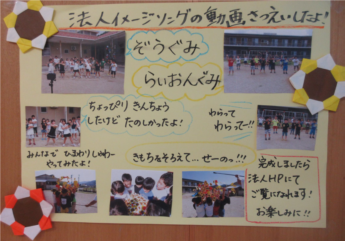 法人イメージソングの動画さつえいしたよ!
ぞうぐみ
らいおんぐみ
ちょっぴり きんちょう
したけど たのしかったよ!
わらって
わらってー!!
みんなで ひまわりしゃわー
やってみたよ!
きもちをそろえて…せーのっ!!!
完成しましたら
法人HPにて
ご覧になれます!
お楽しみに!!